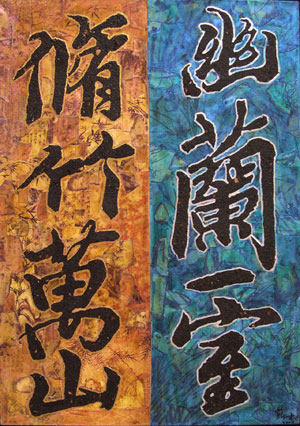 幽蘭一室
脩竹萬山